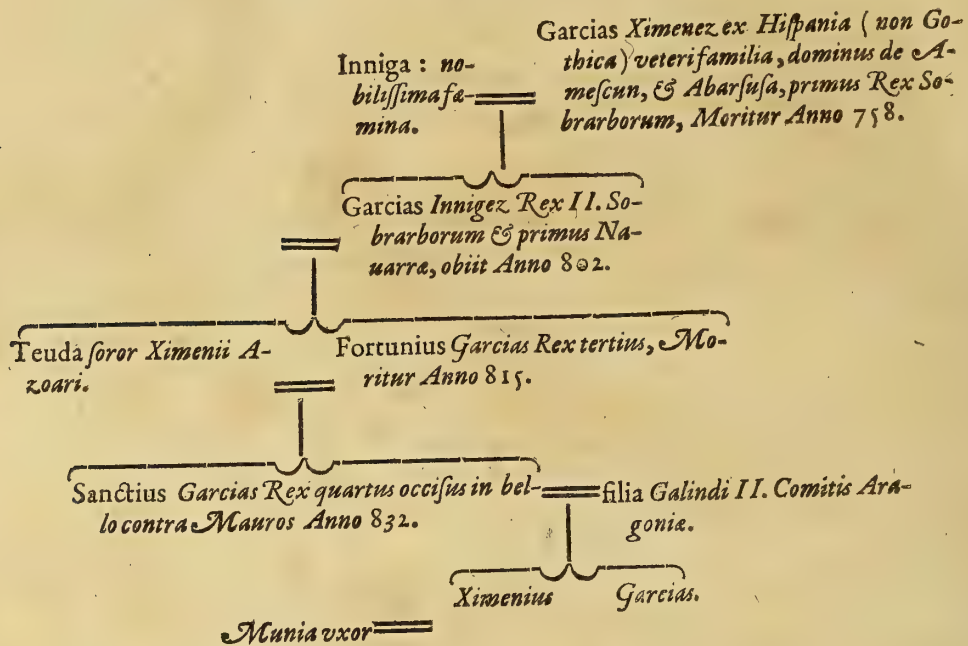 Inniga : no-
biliſſima fæ-
mina.
Garcias Ximenez ex Hiſpania ( non Go-
thica) veteri familia, dominus de A-
meſcun, & Abarſuſa, primus Rex So-
brarborum, Moritur Anno 758.
Garcias Innigez Rex II. So-
brarborum & primus Na-
uarræ, obiit Anno 802.
Teuda ſoror Ximenii A-
zoari.
Fortunius Garcias Rex tertius, Mo-
ritur Anno 815.
Sanctius Garcias Rex quartus occiſus in bel-
lo contra Mauros Anno 832.
filia Galindi II. Comitis Ara-
goniæ.
Ximenius
Garcias.
Munia vxor